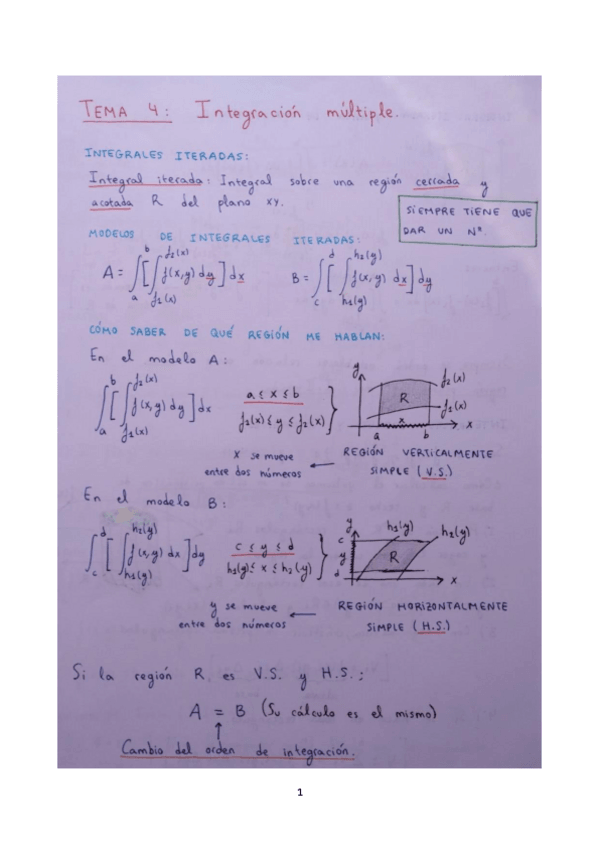 TEMA 4: Integración múltiple.
INTEGRALES ITERADAS:
Integral iterada: Integral sobre una región cerrada y
acotada R del plano xy.
SIEMPRE TIENE QUE
DAR UN Nº.
MODELOS DE INTEGRALES ITERADAS:
A = ∫_a^b [ ∫_{f₁(x)}^{f₂(x)} f(x,y) dy ] dx B = ∫_c^d [ ∫_{h₁(y)}^{h₂(y)} f(x,y) dx ] dy
CÓMO SABER DE QUÉ REGIÓN ME HABLAN:
En el modelo A:
∫_a^b [ ∫_{f₁(x)}^{f₂(x)} f(x,y) dy ] dx
a ≤ x ≤ b
f₁(x) ≤ y ≤ f₂(x) }
y f₂(x)
R
f₁(x)
x
a b x
x se mueve
entre dos números
← REGIÓN VERTICALMENTE
SIMPLE (V.S.)
En el modelo B:
∫_c^d [ ∫_{h₁(y)}^{h₂(y)} f(x,y) dx ] dy
c ≤ y ≤ d
h₁(y) ≤ x ≤ h₂(y) }
y h₁(y) h₂(y)
c
y R
d
x
y se mueve
entre dos números
← REGIÓN HORIZONTALMENTE
SIMPLE (H.S.)
Si la región R es V.S. y H.S.:
A = B (Su cálculo es el mismo)
↑
Cambio del orden de integración.
1